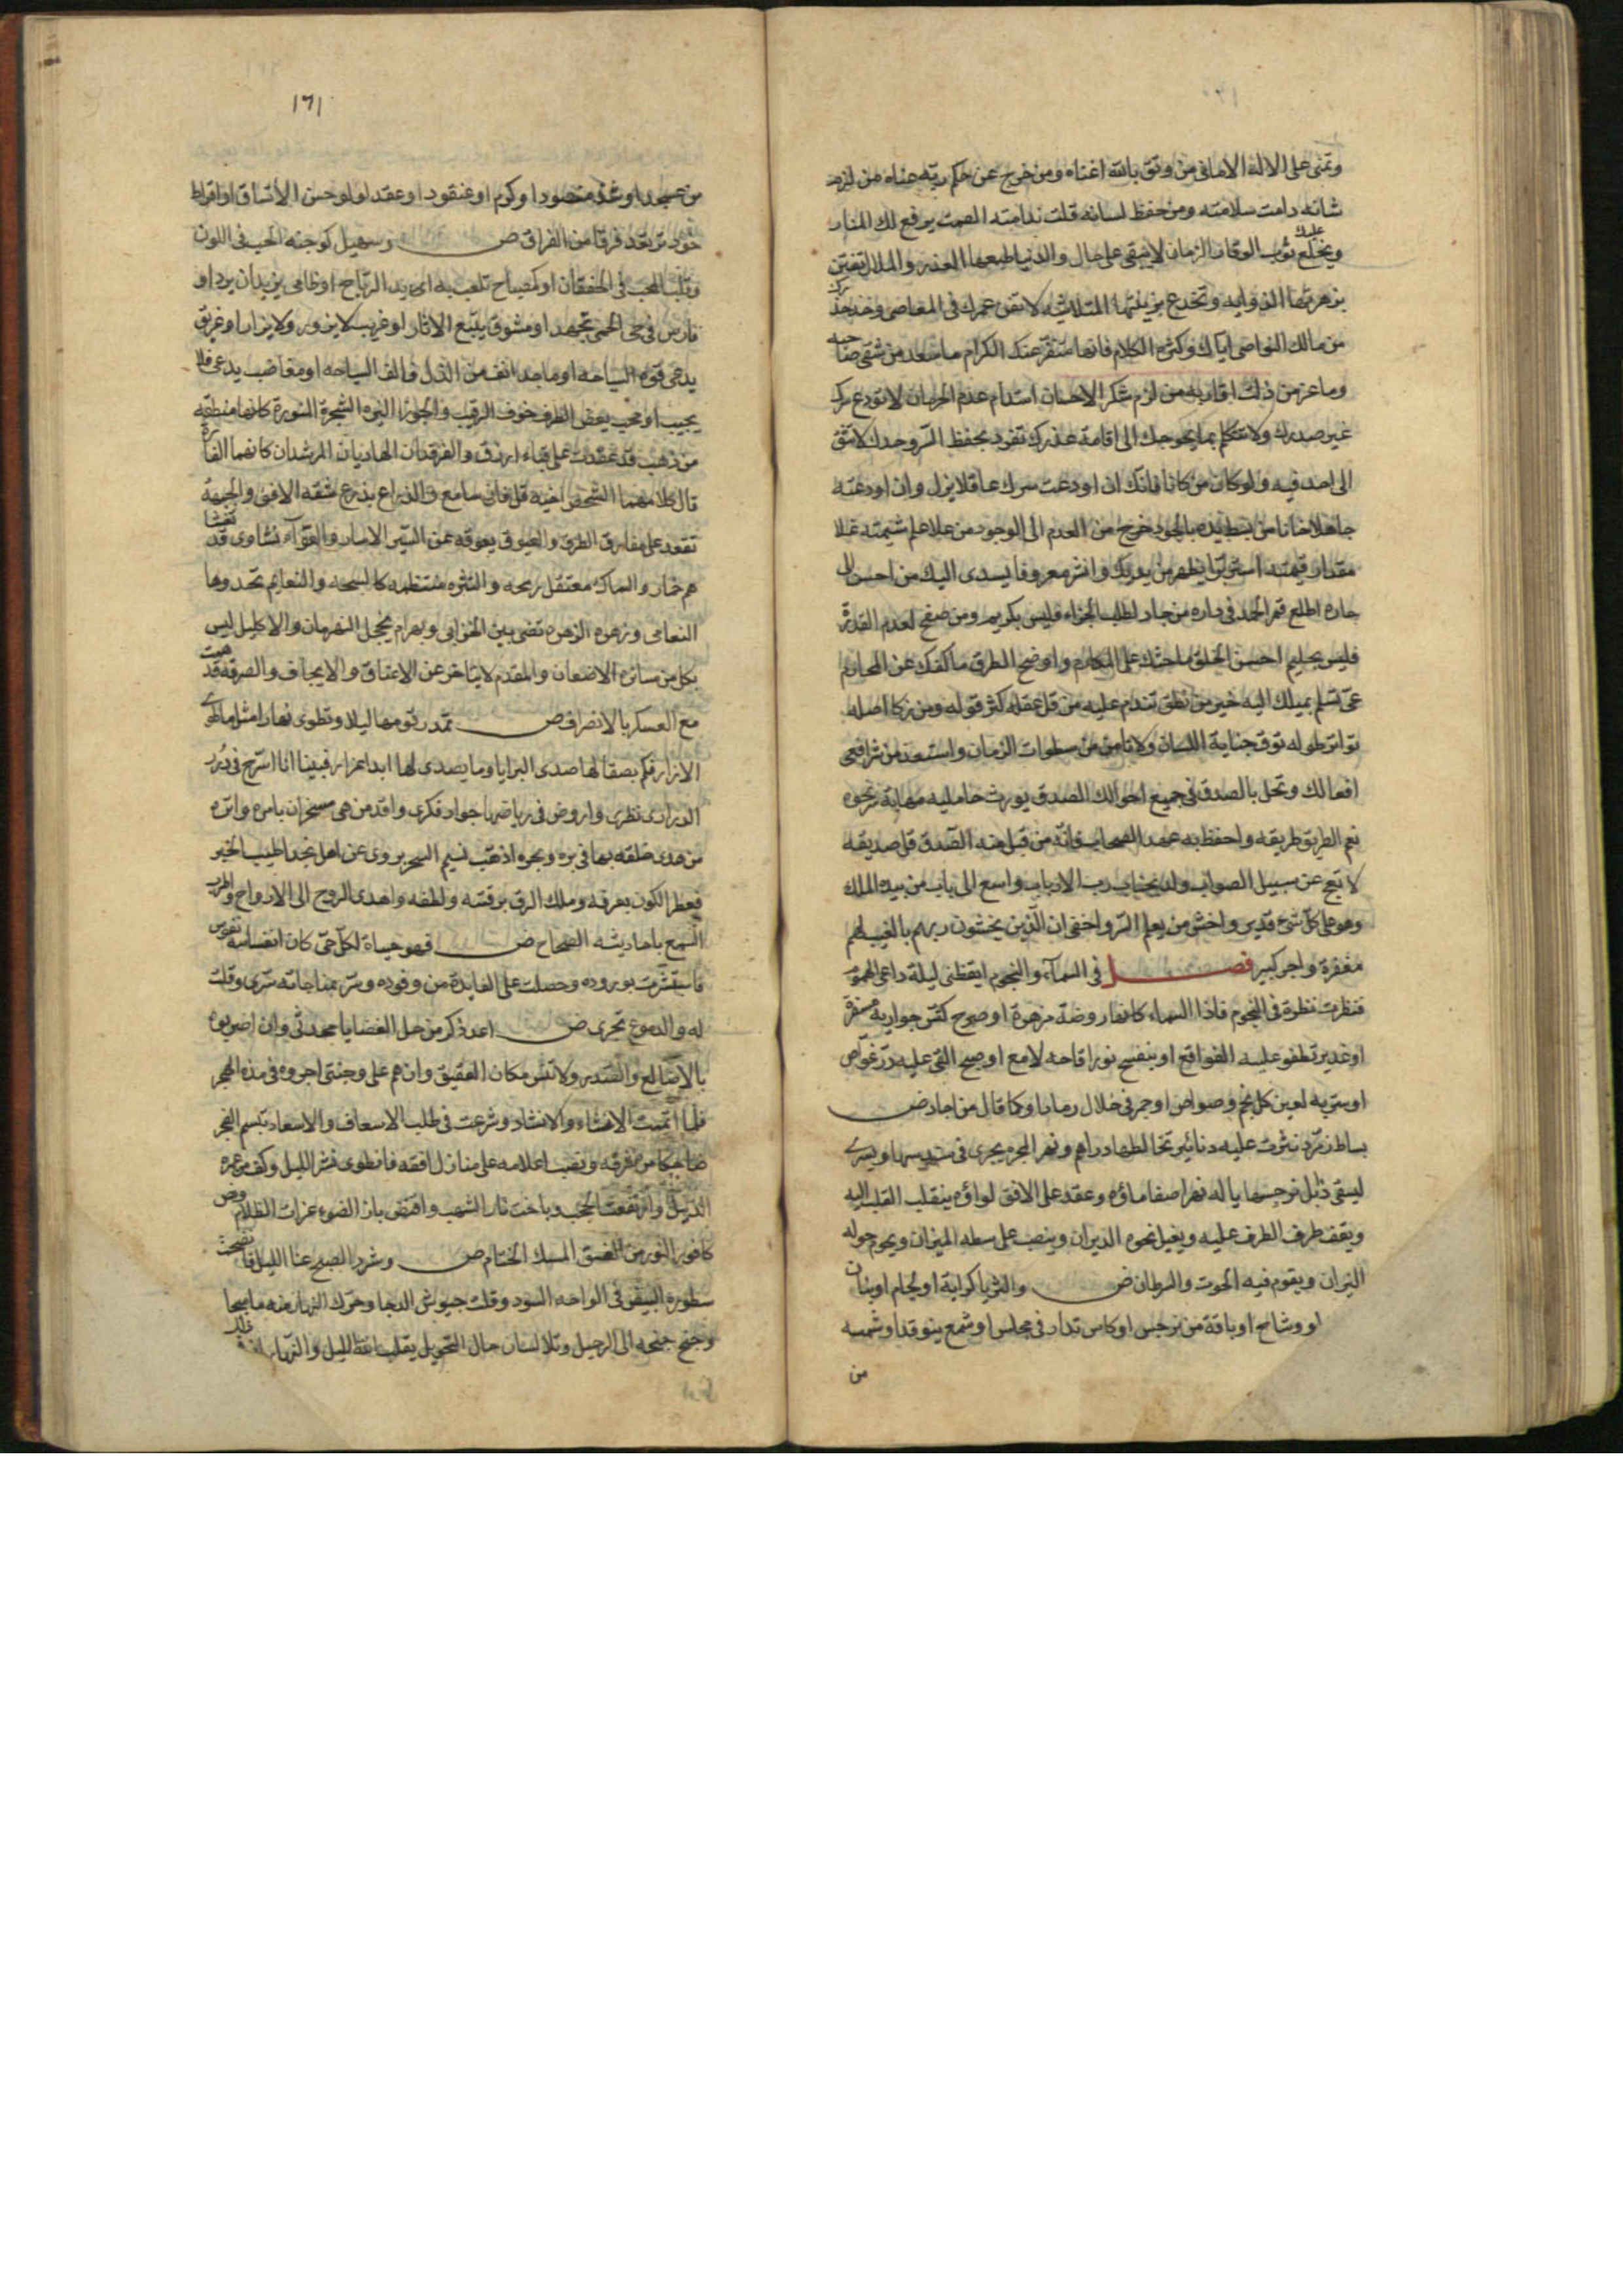 وتمنى على الاله الامانى من وثق بالله اغناه ومن خرج عن حكم ربه عناه من لزم
شانه دامت سلامته ومن حفظ لسانه قلت ندامته الصمت يرفع لك المنار
ويخلع عليك ثوب الوقار الزمان لا يبقى على حال والدنيا طبعها الغدر والملال تفتن
بزهرتها الذوايه وتخدع بزينتها المتلاشيه لا تفن عمرك فى المعاصى وخذ حذرك
من مالك النواصى اياك وكثرة الكلام فانها تنفر عنك الكرام ما سعد من شقى صاحبه
وما عز من ذلت اقاربه من لزم شكر الاحسان استدام عدم الحرمان لا تودع سرك
غير صدرك ولا تتكلم بما يحوجك الى اقامة عذرك تفرد بحفظ السر وحدك لا تثق
الى احد فيه ولو كان من كانا فانك ان اودعت سرك عاقلا يزل وان اودعته
جاهلا خانا من بسط يده بالجود خرج من العدم الى الوجود من علا علم شيمته غلا
مقدار قيمته استر ما يظهر من يديك وانشر معروفا يسدى اليك من احسن الى
جاره اطلع قمر الحمد فى داره من جاد لطلب الجزاء فليس بكريم ومن صفح لعدم القدرة
فليس بحليم احسن الخلق ما حثك على المكارم واوضح الطرق ما كفك عن المحارم
عى تسلم بميلك اليه خير من نطق تندم عليه من قل عقله كثر قوله ومن زكا اصله
تواتر طوله توق جناية اللسان ولا تامن من سطوات الزمان واستعذ من شر افعى
افعالك وتحل بالصدق فى جميع احوالك الصدق يورث حامليه مهابة من نحوه
نعم الطريق طريقه واحفظ به عهد الصحاب فانه من قبل منه الصدق قل صديقه
لا تبح عن سبيل الصواب ولذ بجناب رب الارباب واسع الى باب من بيده الملك
وهو على كل شئ قدير واخش من يعلم السر واخفى ان الذين يخشون ربهم بالغيب لهم
مغفرة واجر كبير فصل فى السماء والنجوم ايقظنى ليلة داعى الهموم
فنظرت نظرة فى النجوم فاذا السماء كانها روضة مزهرة او صرح كنس جواريه مسفرة
او غدير تطفو عليه الفواقع او بنفسج نور اقاحه لامع او صبح القى عليه در غواص
او ستر به لعين كل نجم وصواص او جمر فى خلال رماد او كما قال من اجاد ض
بساط زمرد نثرت عليه دنانير تخالطها دراهم ونهر المجره يجرى فى سيرها ويسرى
ليسقى ذابل نرجسها يا له نهرا صفا ماؤه وعقد على الافق لواؤه ينقلب القلب اليه
ويقف طرف الطرف عليه ويميل نحوه الدبران وينصب على سطه الميزان ويحوم حوله
النسران ويقوم فيه الحوت والسرطان ض والثريا كراية او لجام او بنان
او وشاح او باقة من نرجس او كاس تدار فى مجلس او شمع يتوقد او شمسه
من
١٦١
من عسجد او عذق منضود او كرم او عنقود او عقد لولو حسن الاتساق او اقراط
خود ترتعد فرقا من الفراق ض وسهيل كوجنة الحب فى اللون
وقلب المحب فى الخفقان او كمصباح تلعب به ايدى الرياح او ظامى يزيد ان يرد او
فارس فى حمى الحمى مجتهد او مشوق يتبع الاثار او غريب لا يزور ولا يزار او غريق
يدعى قوة السباحه او ماجد انف من الذل فالف السياحه او مغاضب يدعى فلا
يجيب او محب يغض الطرف خوف الرقيب والجوزا النيره الشجرة المنورة كانها منطقة
من ذهب قد عقدت على قباء ازرق والفرقدان الهاديان المرشدان كانهما الفا
قال كلا منهما لشخص اخيه قل فانى سامع والذراع يذرع شقة الافق والجبهة
تقعد على مفارق الطرق والعيوق يعوقه عن السير الاسار والعواء نشاوى قد
هم خار والسماك معتقل رمحه والنثره منتظمه كالسبحه والنعايم تحدوها
النعامى وزهرة الزهره تضى بين الخزامى وبهرام يخجل البهرمان والاكليل ليس
بكل من مسائرة الاضعان والمقدم لا يتاخر عن الاعناق والايجاف والصرفه قد همت
مع العسكر بالانصراف ض تمد رقومها ليلا وتطوى نهارا مثل ما طوى
الازار فكم بصقالها صدى البرايا وما يصدى لها ابدا غرار فبينا انا اسرح فى درر
الدرارى نظرى واروض فى رياضها جواد فكرى واقدس من هى مسخرات بامره واثره
من هدى خلقه بها فى بره وبحره اذ هب نسيم السحر يروى عن اهل نجد اطيب الخبر
فعطر الكون بعرفه وملك الرق برقته ولطفه واهدى الروح الى الارواح
السمع باحاديثه الصحاح ض فهو حياة لكل حى كان انفاسه نفوس
فاستبشرت بوروده وحصلت على الفايدة من وفوده وسر بمفاجاته سرى وقلت
له والدموع تجرى ض اعد ذكر من حل الغضا يا محدثى وان اضرموه
بالاضالع والسدير ولا تنس سكان العقيق وان هم على وجنتى اجروه فى مدة الهجر
فلما اتممت الانشاء والانشاد وشرعت فى طلب الاسعاف والاسعاد تبسم الفجر
ضاحكا من شرقه ونصب اعلامه على منازل افقه فانطوى نشر الليل وكف من غمره
الذيل وارتفعت الحجب وباخت نار الشهب واقتض باز الضوء غراب الظلام وفض
كافور النور من الغسق المسك الختام ض وشرد الصبح عنا الليل فاتضحت
سطوره البيض فى الواحه السود وقلت جيوش الدجا وحرك النهار
وجنح جنحه الى الرحيل وتلا لسان حال التحويل يقلب الله الليل والنهار